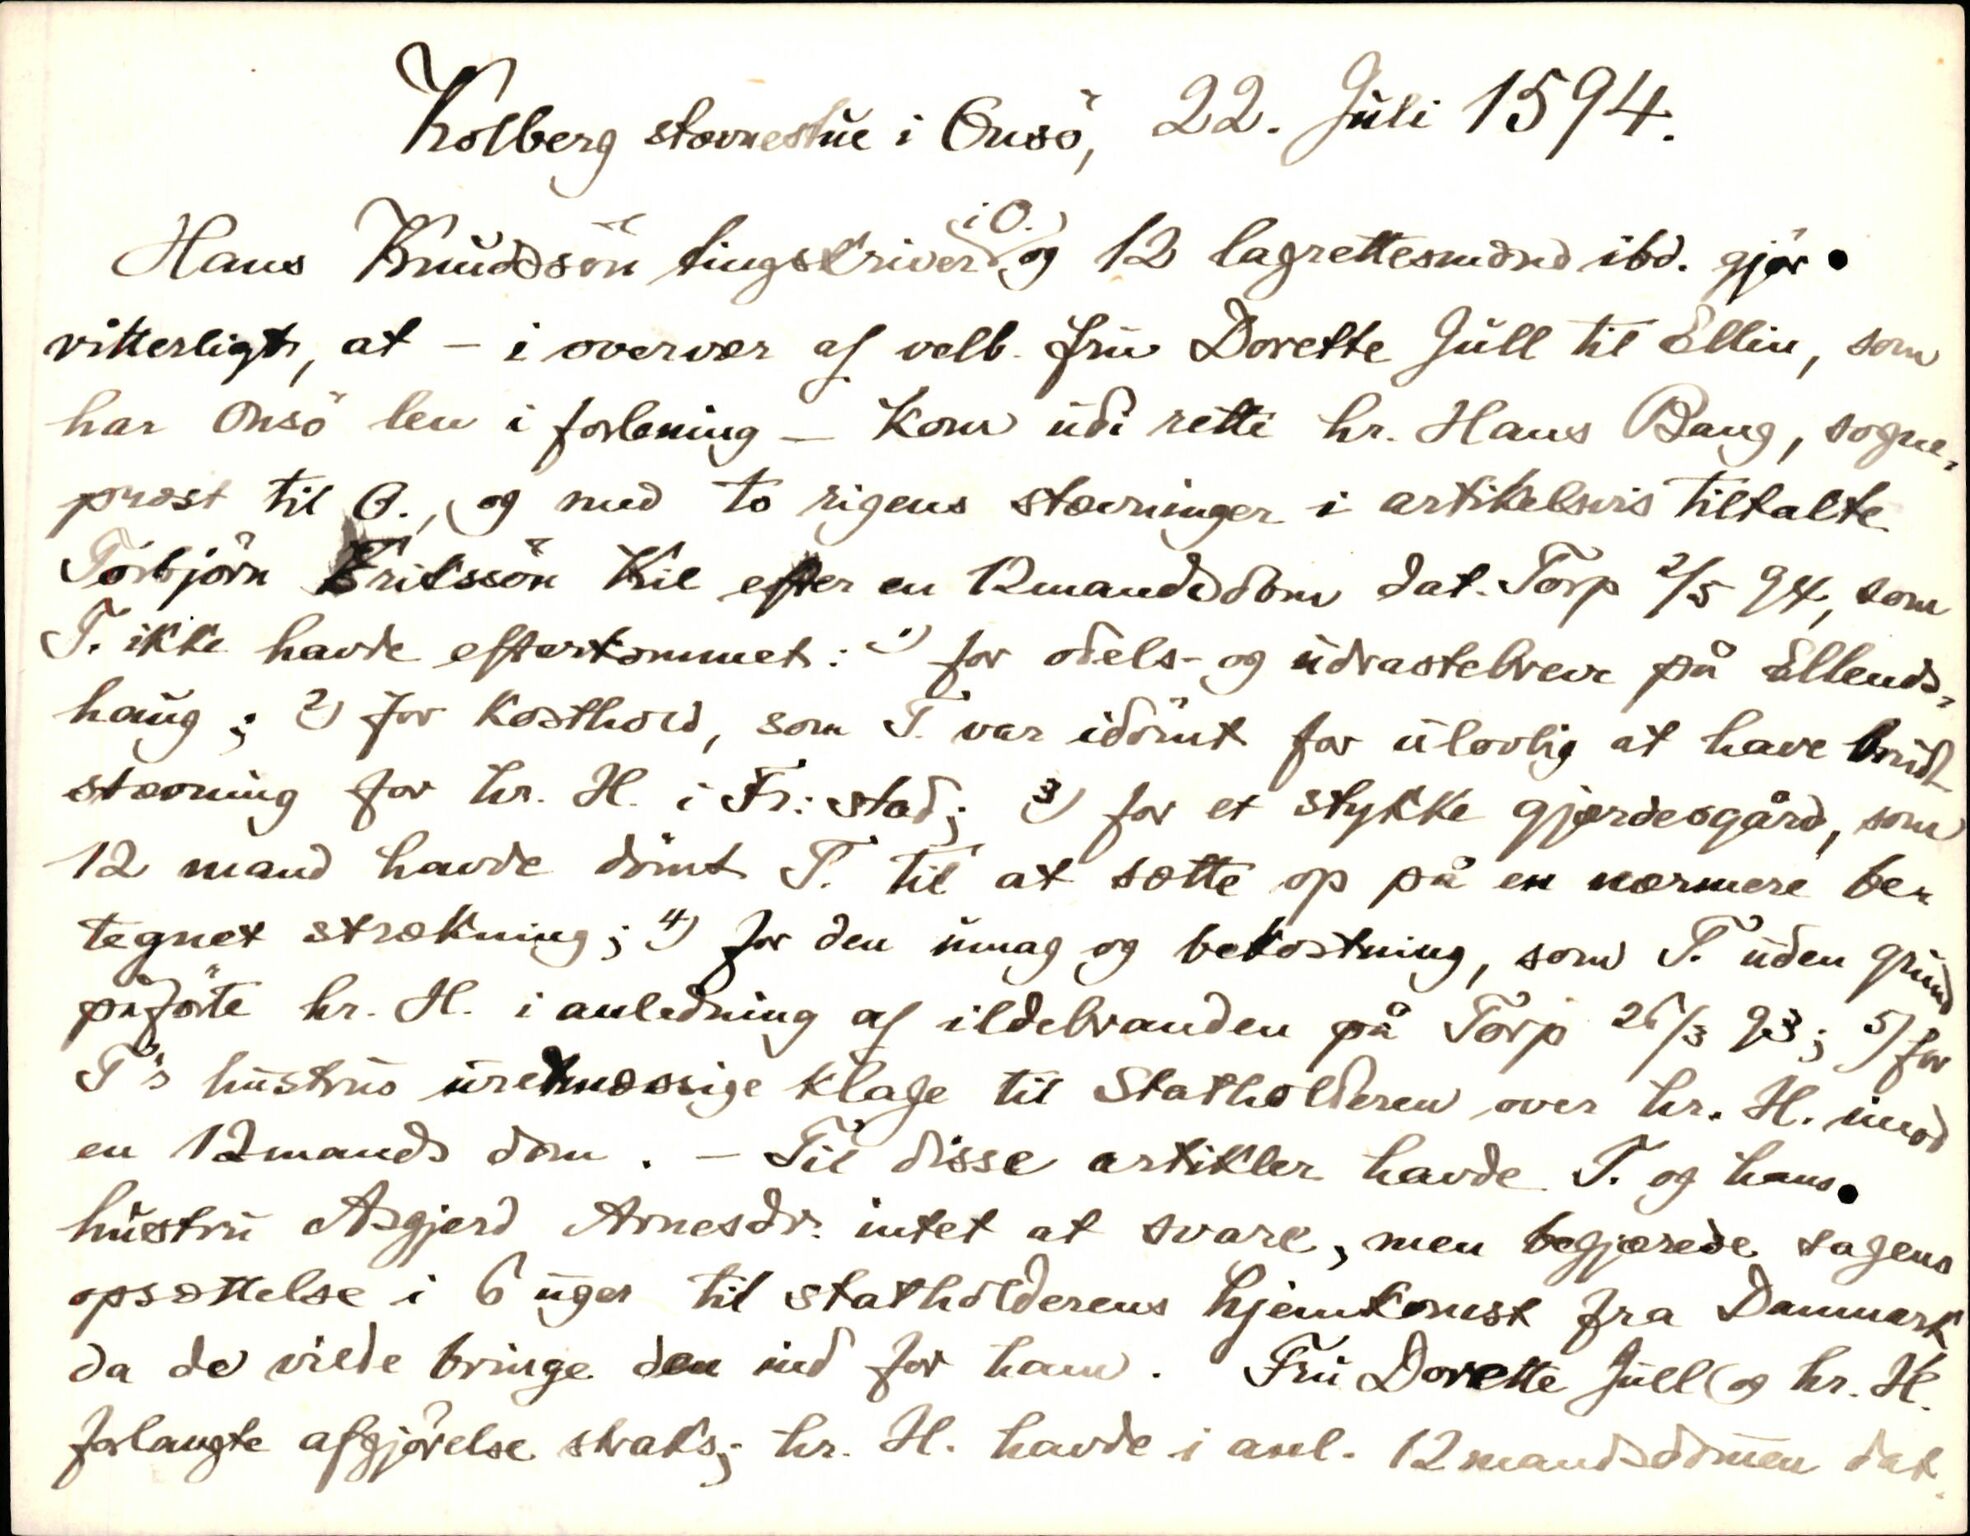 Kolberg stævnestue i Onsö, 22. Juli 1594.
Hans Knudssön tingskriver i O. og 12 lagrettesmænd ibd. gjör
vitterligt, at – i overvær af velb. fru Dorette Jull til Ellin, som
har Onsö len i forlening – kom udi rette hr. Hans Bang, sogne-
præst til O., og med to rigens stævninger i artikelsvis tiltalte
Torbjörn Erikssön Kil efter en 12mandsdom dat. Torp 2/5 94, som
T. ikke havde efterkommet: 1) for odels- og udrastebreve på Ellends-
haug; 2) for kosthold, som T. var idömt for ulovlig at have brudt
stævning for hr. H. i Fr:stad; 3) for et stykke gjærdesgård, som
12 mand havde dömt T. til at sætte op på en nærmere be-
tegnet strækning; 4) for den umag og bekostning, som T. uden grund
påförte hr. H. i anledning af ildebranden på Torp 26/3 93; 5) for
T's hustrus uretmæssige klage til Statholderen over hr. H. imod
en 12mands dom. – Til disse artikler havde T. og hans
hustru Asgjerd Arnesdr. intet at svare, men begjærede sagens
opsættelse i 6 uger til statholderens hjemkomst fra Danmark
da de vilde bringe den ind for ham. Fru Dorette Jull og hr. H.
forlangte afgjörelse straks; hr. H. havde i anl. 12mandsdömen dat.